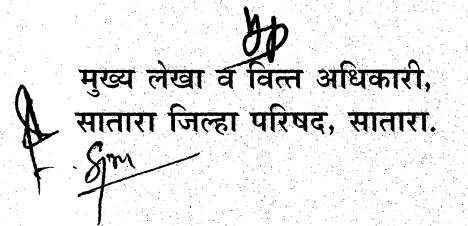 मुख्य लेखा व वित्त अधिकारी,
सातारा जिल्हा परिषद, सातारा.